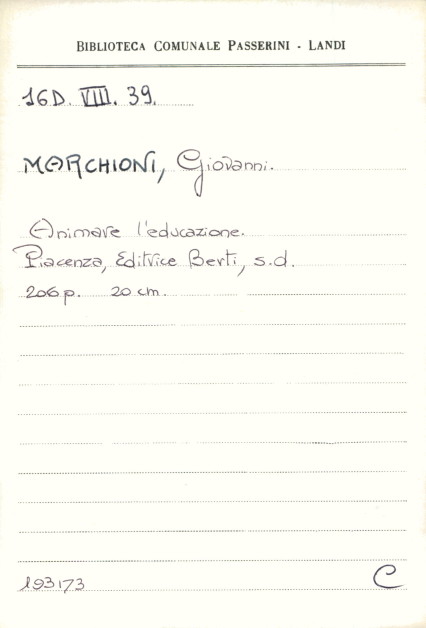 BIBLIOTECA COMUNALE PASSERINI - LANDI
16D. VIII. 39.
MARCHIONI, Giovanni.
Animare l'educazione.
Piacenza, Editrice Berti, s.d.
206 p. 20 cm.
193173 C